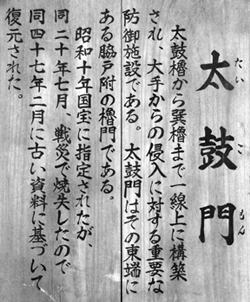 太鼓門
たいこもん
太鼓櫓から巽櫓まで一線上に構築
され、大手からの侵入に対する重要な
防御施設である。太鼓門はその東端に
ある脇戸附の櫓門である。
昭和十年国宝に指定されたが、
同二十年七月、戦災で焼失したので
同四十七年二月に古い資料に基づいて
復元された。